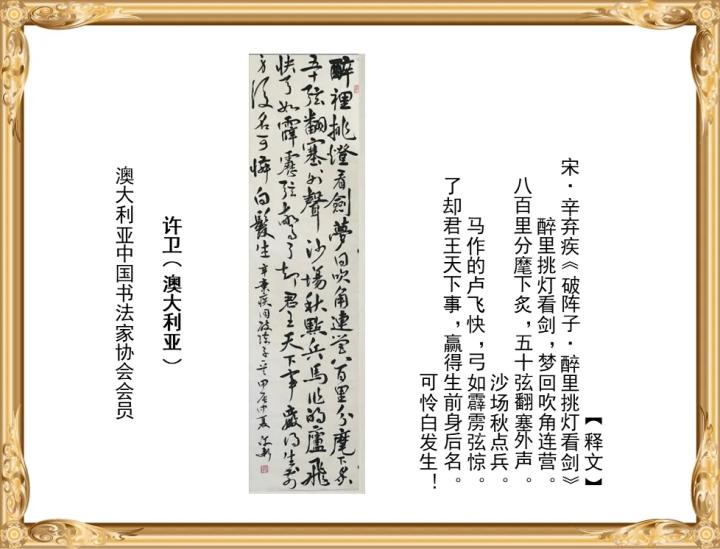 【释文】
宋·辛弃疾《破阵子·醉里挑灯看剑》
醉里挑灯看剑，梦回吹角连营。
八百里分麾下炙，五十弦翻塞外声。
沙场秋点兵。
马作的卢飞快，弓如霹雳弦惊。
了却君王天下事，赢得生前身后名。
可怜白发生！
醉裡挑燈看劍夢回吹角連營八百里分麾下炙
五十弦翻塞外聲沙場秋點兵馬作的廬飛
快弓如霹靂弦驚了却君王天下事贏得生前
身後名可憐白髮生 辛棄疾词破陣子 甲辰仲夏
许卫（澳大利亚）
澳大利亚中国书法家协会会员